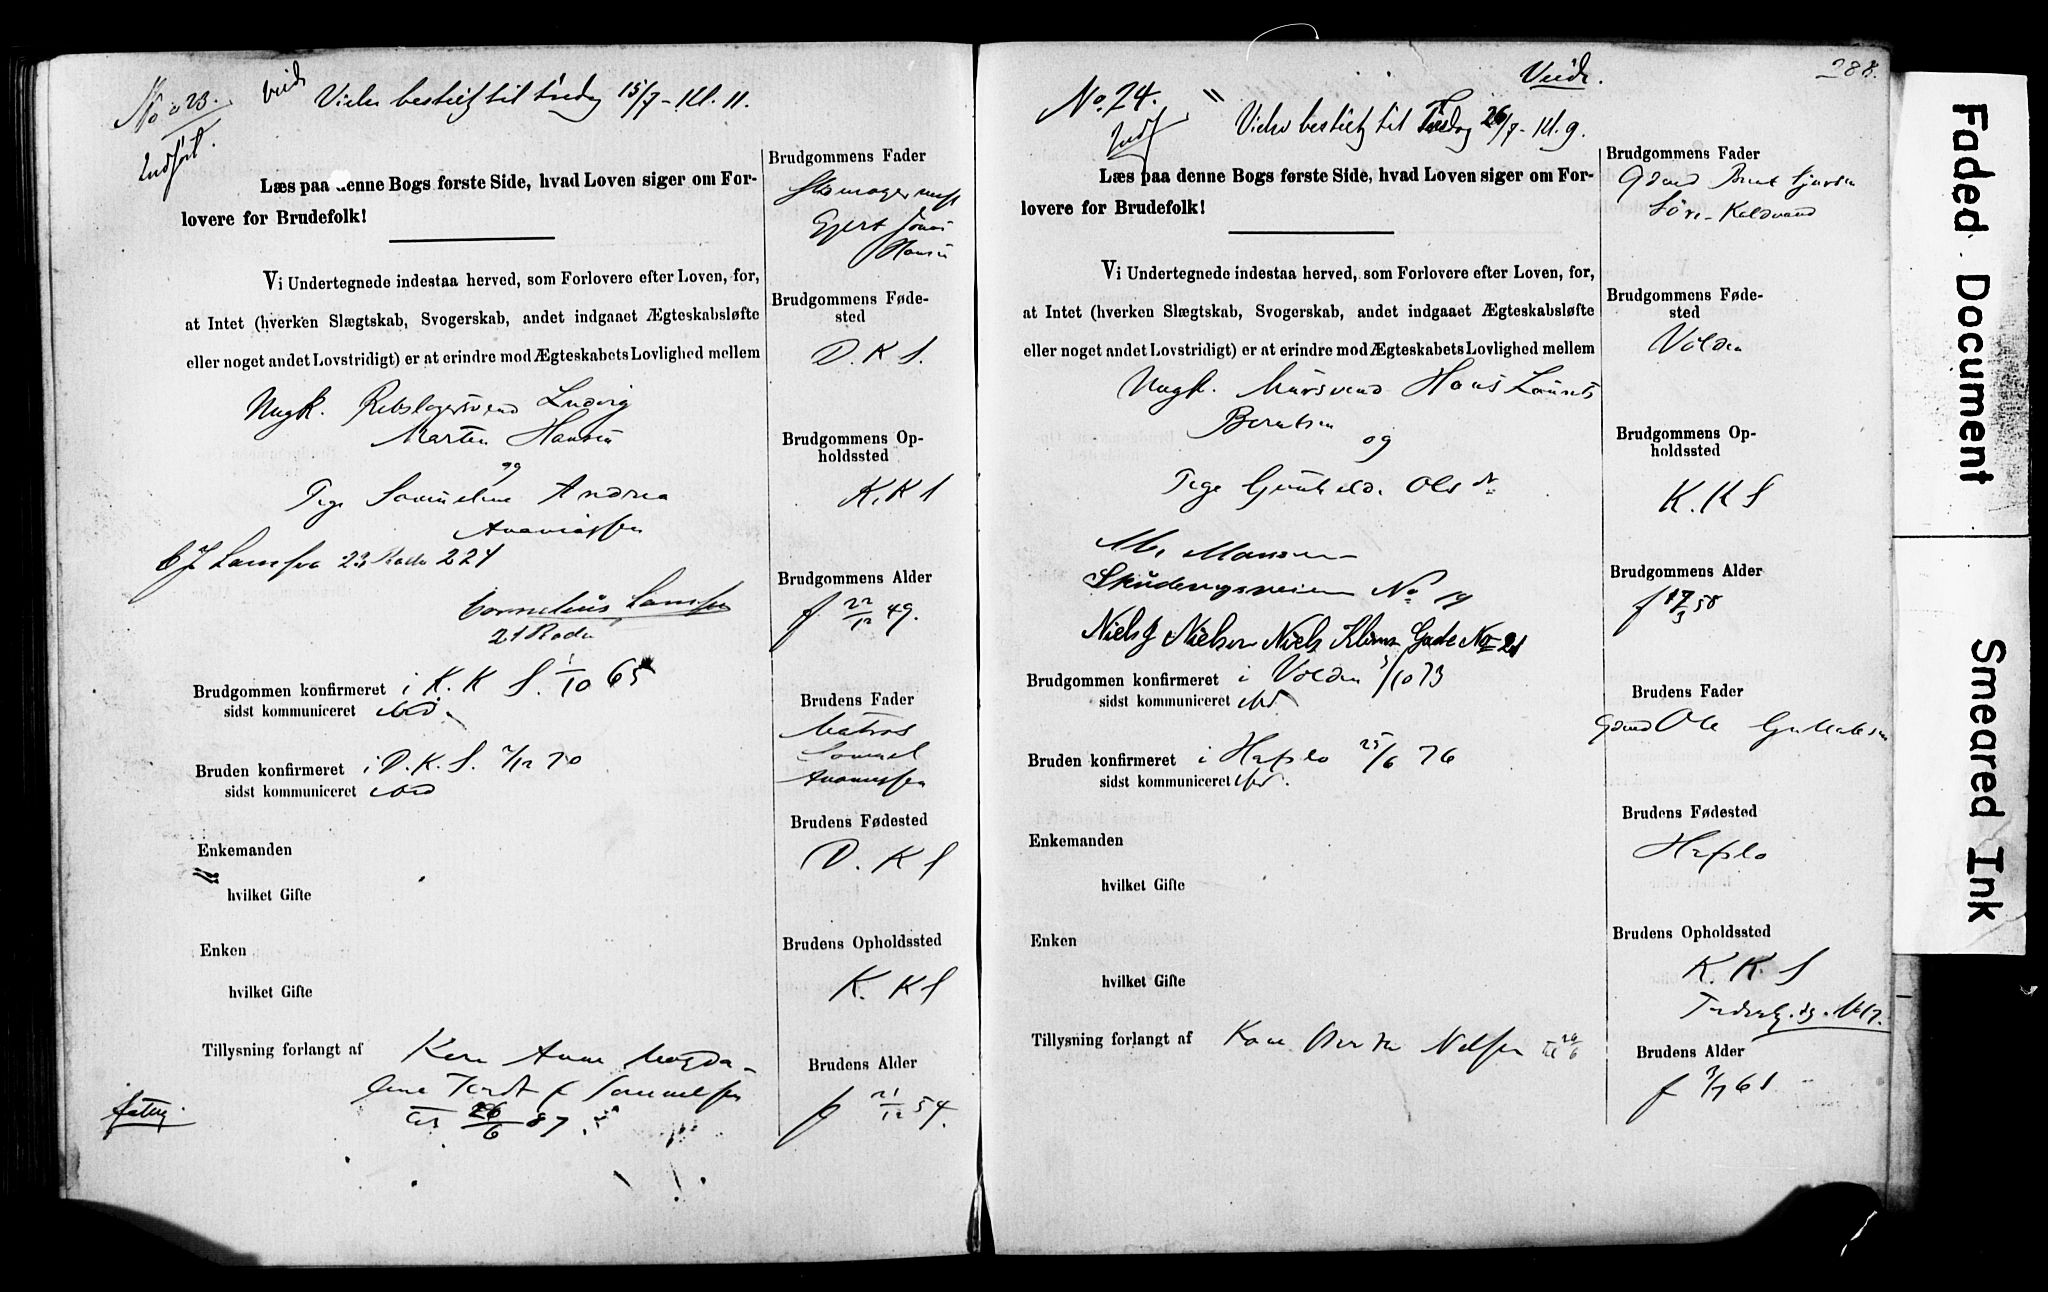 No 23.
Viede
Vielse bestilt til fredag 15/7 - Kl. 11.
Indført.
Læs paa denne Bogs første Side, hvad Loven siger om For-
lovere for Brudefolk!
Vi Undertegnede indestaa herved, som Forlovere efter Loven, for,
at Intet (hverken Slægtskab, Svogerskab, andet indgaaet Ægteskabsløfte
eller noget andet Lovstridigt) er at erindre mod Ægteskabets Lovlighed mellem
Ungk. Rebslagersvend Ludvig
Martin Hansen
og
Pige Samueline Andrea
Ananiassen
23 Rode 224
Cornelius
21 Rode
Brudgommen konfirmeret i K. K S. 1/10 65
sidst kommuniceret
Bruden konfirmeret i D. K. S. 7/12 70
sidst kommuniceret
Enkemanden
hvilket Gifte
Enken
hvilket Gifte
Tillysning forlangt af Kone Anne Magda-
lene Samuelsen
26/6 87
Brudgommens Fader
Skomagermest
Ejert Jonas
Hansen
Brudgommens Føde-
sted
D. K S.
Brudgommens Op-
holdssted
K. K S
Brudgommens Alder
f 22/12 49.
Brudens Fader
Matros
Samuel
Ananiassen
Brudens Fødested
D. K S
Brudens Opholdssted
K. K S
Brudens Alder
f 21/12 54.
288.
Viede.
No. 24.
Indf
Vielse bestilt til Tirsdag 26/7 - Kl. 9.
Læs paa denne Bogs første Side, hvad Loven siger om For-
lovere for Brudefolk!
Vi Undertegnede indestaa herved, som Forlovere efter Loven, for,
at Intet (hverken Slægtskab, Svogerskab, andet indgaaet Ægteskabsløfte
eller noget andet Lovstridigt) er at erindre mod Ægteskabets Lovlighed mellem
Ungk. Mursvend Hans Laurits
Berntsen
og
Pige Gunhilde Olsdr
Monsen
Skudevigsveien No 19
Niels J Nielsen Niels Klims Gade No 21
Brudgommen konfirmeret i Volden 5/10 73
sidst kommuniceret
Bruden konfirmeret i Hafslo 25/6 76
sidst kommuniceret
Enkemanden
hvilket Gifte
Enken
hvilket Gifte
Tillysning forlangt af Kone Nilsen 26/6
Brudgommens Fader
Gdmd Bernt
Brudgommens Føde-
sted
Volden
Brudgommens Op-
holdssted
K. K S
Brudgommens Alder
f 17/3 58
Brudens Fader
Gdmd Ole
Brudens Fødested
Hafslo
Brudens Opholdssted
K. K. S
Brudens Alder
f 3/7 61
Faded Document
Smeared Ink